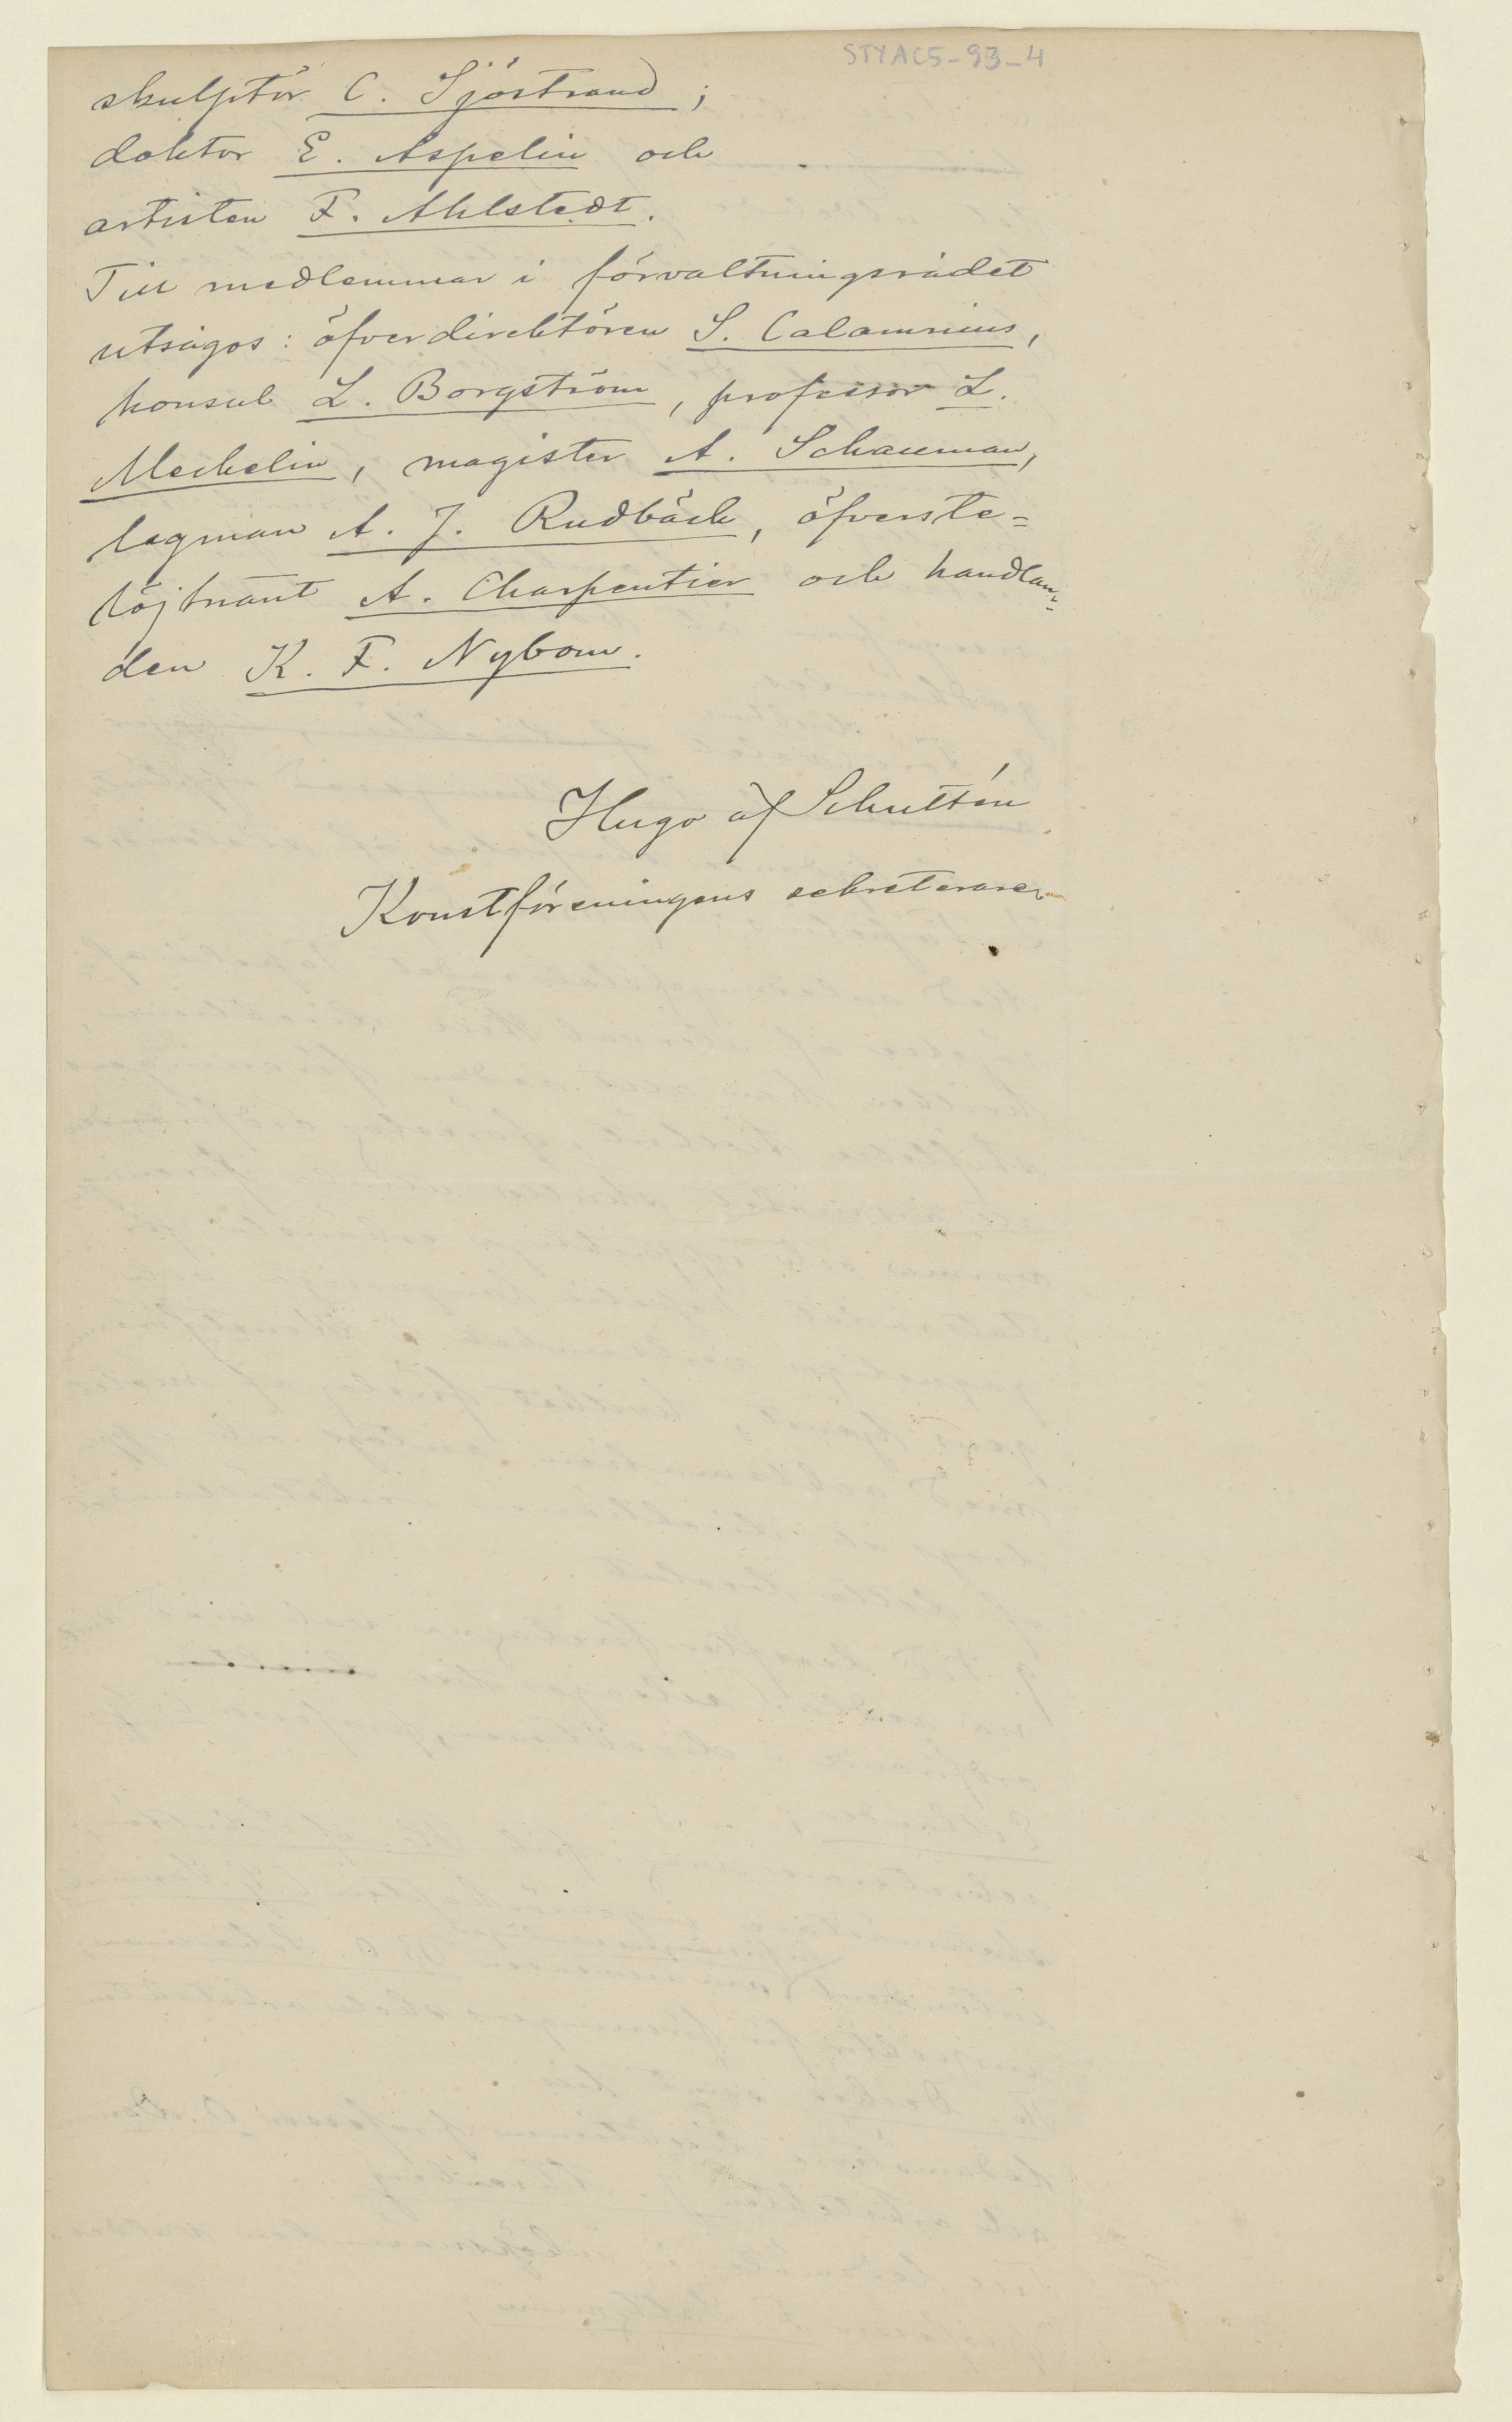 STYAC5-93-4
skulptör C. Sjöstrand;
doktor E. Aspelin och
artisten F. Ahlstedt.
Till medlemmar i förvaltningsrådet
utsågos: öfverdirektören S. Calamnius,
konsul L. Borgström, professor L.
Mechelin, magister A. Schauman,
lagman A. J. Rudbäck, öfverste-
löjtnant A. Charpentier och handlan-
den K. F. Nybom.
Hugo af Schultén
Konstföreningens sekreterare